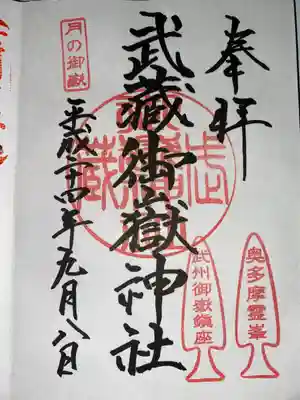 奉拝
奥多摩霊峯
武州御嶽鎮座
武蔵御嶽神社
月の御嶽
平成二十四年元月八日